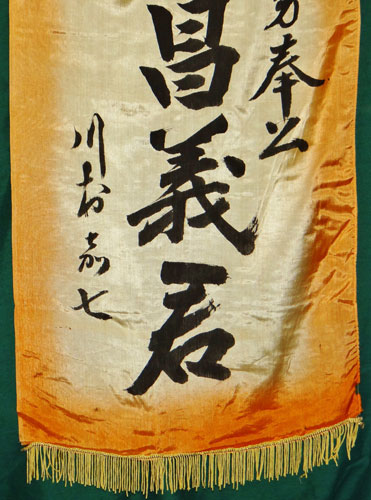 奉公
昌義君
川村嘉七